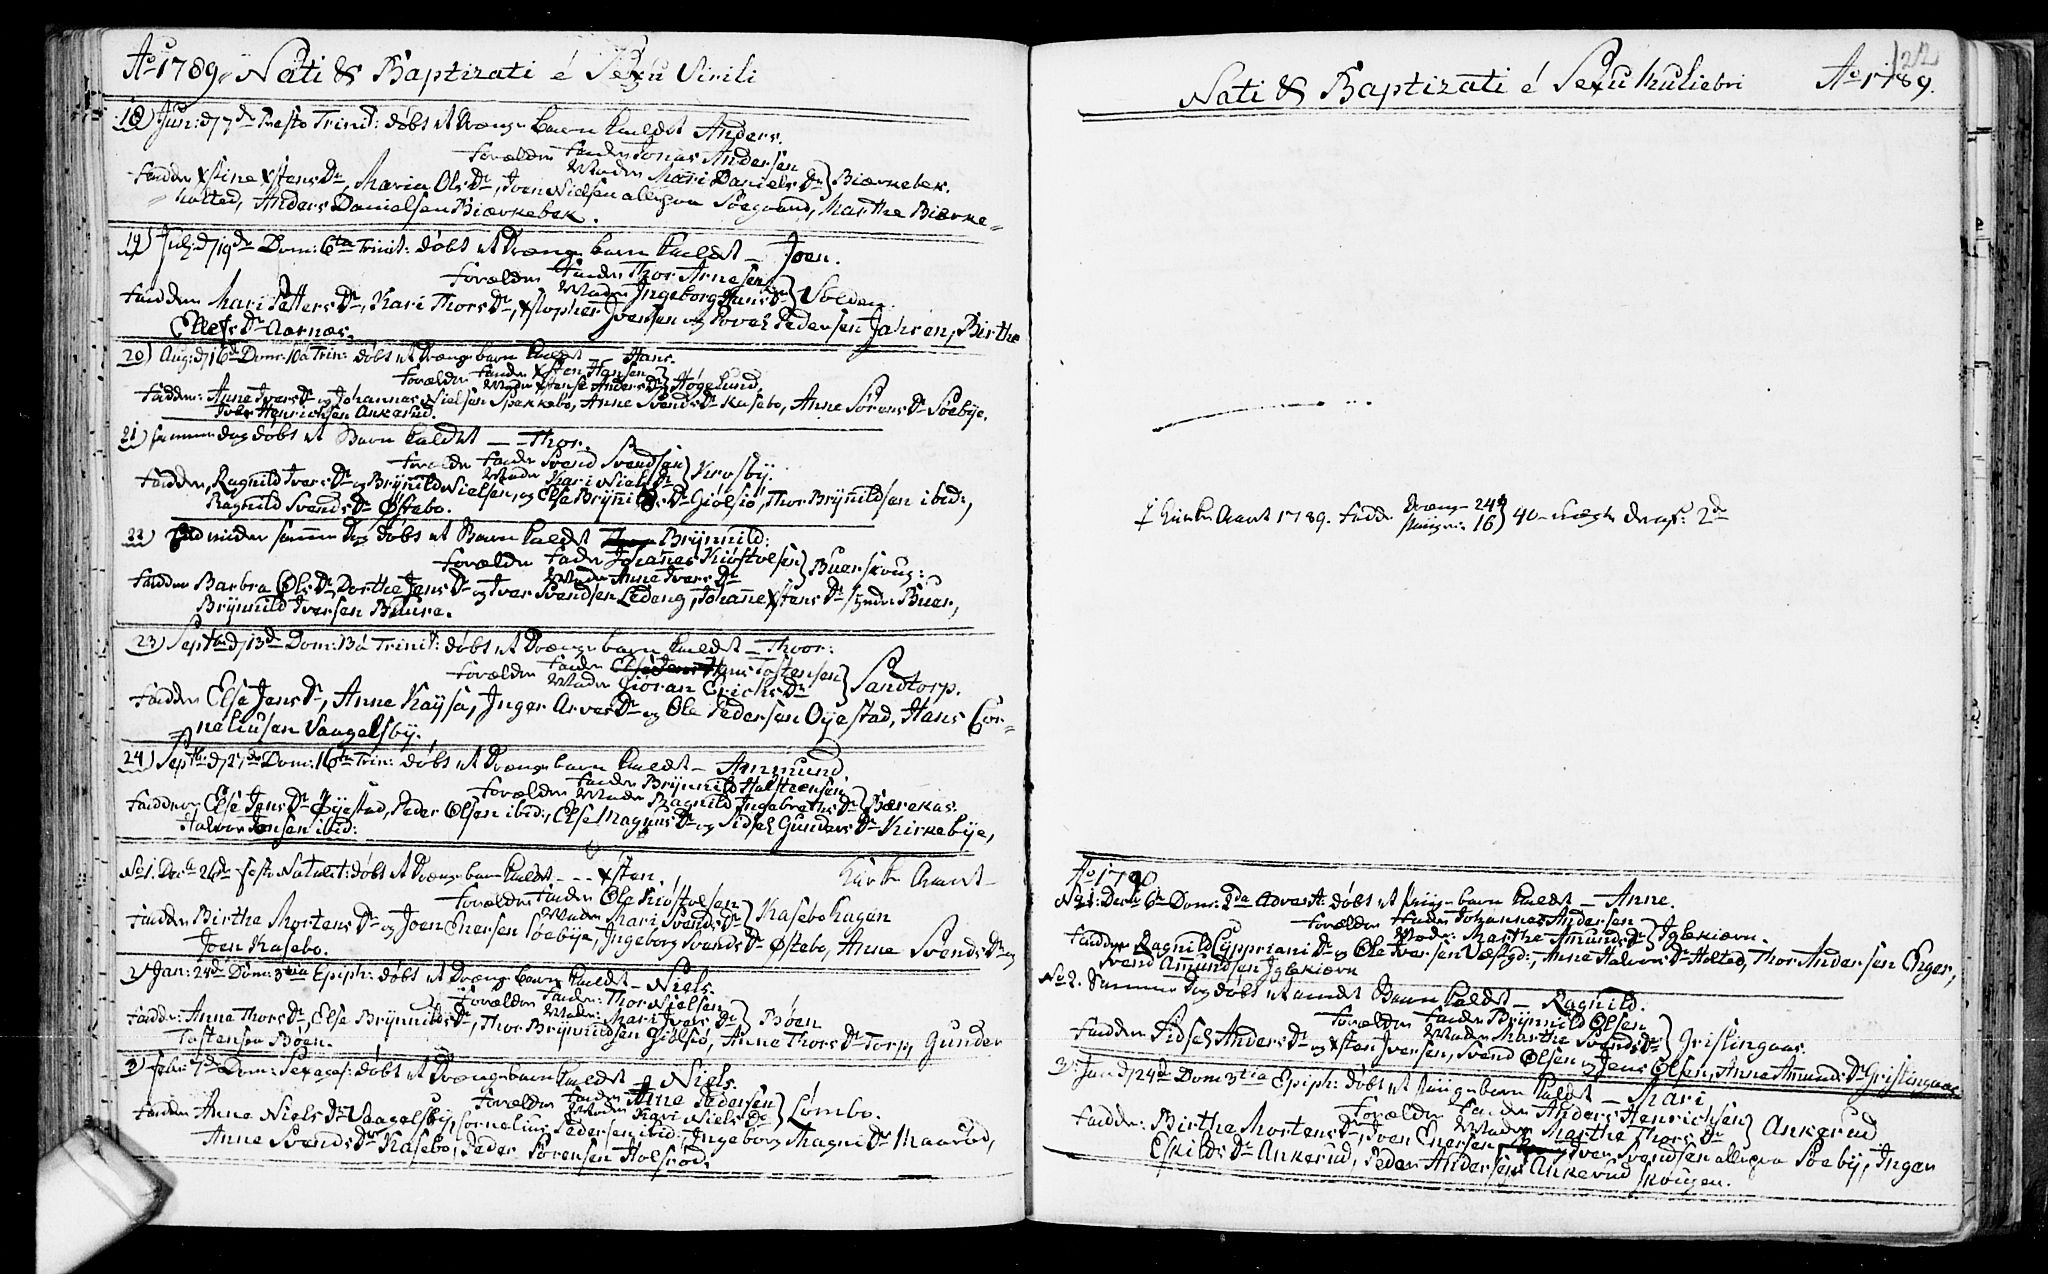 Aº 1789. Nati & Baptizati é Sexu Virili
18) Jun: d 7de Festo Trinit: døbt et Drænge barn kaldet Anders.
Forældre Fader Jonas Andersen
Moder Mari Daniels Dr } Biærkebek.
Fadder Xstine Xstens Dr, Maria Ols Dr, Iver Nielsen alle fra Søegaard, Marthe Biærke-
holted, Anders Danielsen Biærkebek.
19) Julj: d 19de Dom: 6ta Trinit: døbt et Drænge barn kaldet – Joen.
Forældre Fader Thor Arnesen
Moder Ingeborg Hans Dr } Solden.
Faddere Mari Petters Dr, Kari Thors Dr, Xstopher Iversen og Povel Pedersen Jahren, Birthe
Ellefs Dr Aarnæs.
20) Aug: d 16de Dom: 10a Trin: døbt et Drænge barn kaldet – Hans.
Forældre Fader Xsten Hansen
Moder Xstense Anders Dr } Høgelund.
Fadder: Anne Ivers Dr og Johannes Nielsen Spekkebo, Anne Svends Dr Kasebo, Anne Sørens Dr Søebye.
Iver Henrichsen Ankerud.
21) samme dag døbt et Barn kaldet – Thor.
Forældre Fader Svend Svendsen
Moder Kari Niels Dr } Krosby.
Fadder, Ragnild Ivers Dr og Brÿnild Nielsen, og Else Brÿnilds Dr Giølsiø, Thor Brÿnildsen ibid:,
Ragnild Svends Dr Østebo.
22) samme Dag døbt et Barn kaldet Brÿnnild:
Forældre Fader Johannes Kiøstolsen
Moder Anne Ivers Dr } Buerskoug:
Fadder Barbra Ols Dr, Dorthe Jens Dr og Iver Svendsen Ledeng, Johanne Xstens Dr Buer,
Brÿnnild Iversen Buure.
23) Septbr d 13de Dom: 13a Trinit: døbt et Drænge barn kaldet – Thoor:
Forældre Fader Hans Tostensen
Moder Giøran Erichs Dr } Sandtorp.
Fadder Else Jens Dr, Anne Kaÿsa, Inger Arves Dr og Ole Pedersen Oÿestad, Hans Cor-
neliusen Vaagelsbÿ.
24) Septbr: d 27de Dom: 16ta Trin: døbt et Drænge barn kaldet – Ammund.
Forældre Fader Brÿnnild Halstensen
Moder Ragnild Ingebreths Dr } Bærekas.
Faddere Else Jens Dr Øÿestad, Peder Olsen ibid:, Else Magnus Dr og Sidsel Gunders Dr Kirkebÿe,
Halvor Jensen ibid:
No 1. Decbr 26de festo Nativit: døbt et Drænge barn kaldet – – – Xsten. Kirke Aaret –
Forældre Fader Ole Kiøstolsen
Moder Mari Svends Dr } Kasebo hagan
Fadder Birthe Mortens Dr og Joen Enersen Søebÿe, Ingeborg Svends Dr Østebo, Anne Svends Dr og
Joen Kasebo.
2) Jan: 24de Dom: 3tia Epiph: døbt et Drænge barn kaldet – Niels.
Forældre Fader: Thor Nielsen
Moder: Mari Ivers Dr } Bøen
Fadder: Anne Thors Dr, Else Brÿnnilds Dr, Thor Brÿnnildsen Giølsiø, Anne Thors Dr Torp, Gunder
Tostensen Bøen.
3) febr: 7de Dom: Sexages: døbt et Drænge barn kaldet – Niels.
Forældre Fader Arne Pedersen
Moder Kari Niels Dr } Lømbo.
Fadder Anne Niels Dr Vaagelsbÿ, Cornelius Pedersen ibid:, Ingeborg Magni Dr Maarud,
Anne Svends Dr Kasebo, Peder Sørensen Holsrød.
122
Nati & Baptizati é Sexu Muliebri Aº 1789.
I Kirke Aaret 1789. fødde Drænge 24
Piiger: 16 } 40 – 2de
Aº 1790
No 1: Decbr 6te Dom: 2da Advent: døbt et Piige barn kaldet – Anne.
Forældre Fader Johannes Andersen
Moder: Marthe Amunds Dr } Iglekiærn.
Faddere Ragnild Cyppriani Dr og Ole Iversen Væstgd:, Anne Halvors Dr Holted, Thor Andersen Enger,
Svend Ammundsen Iglekiærn
No 2. Samme Dag døbt et andet Barn kaldet – Ragnild.
Forældre Fader Brÿnnild Olsen
Moder Marthe Svends Dr } Grislingaas.
Fadder Sidsel Anders Dr og Xsten Iversen, Svend Olsen og Jens Olsen, Anne Amunds Dr Grislingaas
3) Jan d 24de Dom 3tia Epiph: døbt et Piige barn kaldet – Mari
Forældre Fader Anders Henrichsen
Moder Marthe Thors Dr } Ankerud
Fadder: Birthe Mortens Dr, Iven Enersen og Iver Svendsen alle fra Søebÿ, Inger
Eskilds Dr Ankerud, Peder Andersen Ankerud skougen.